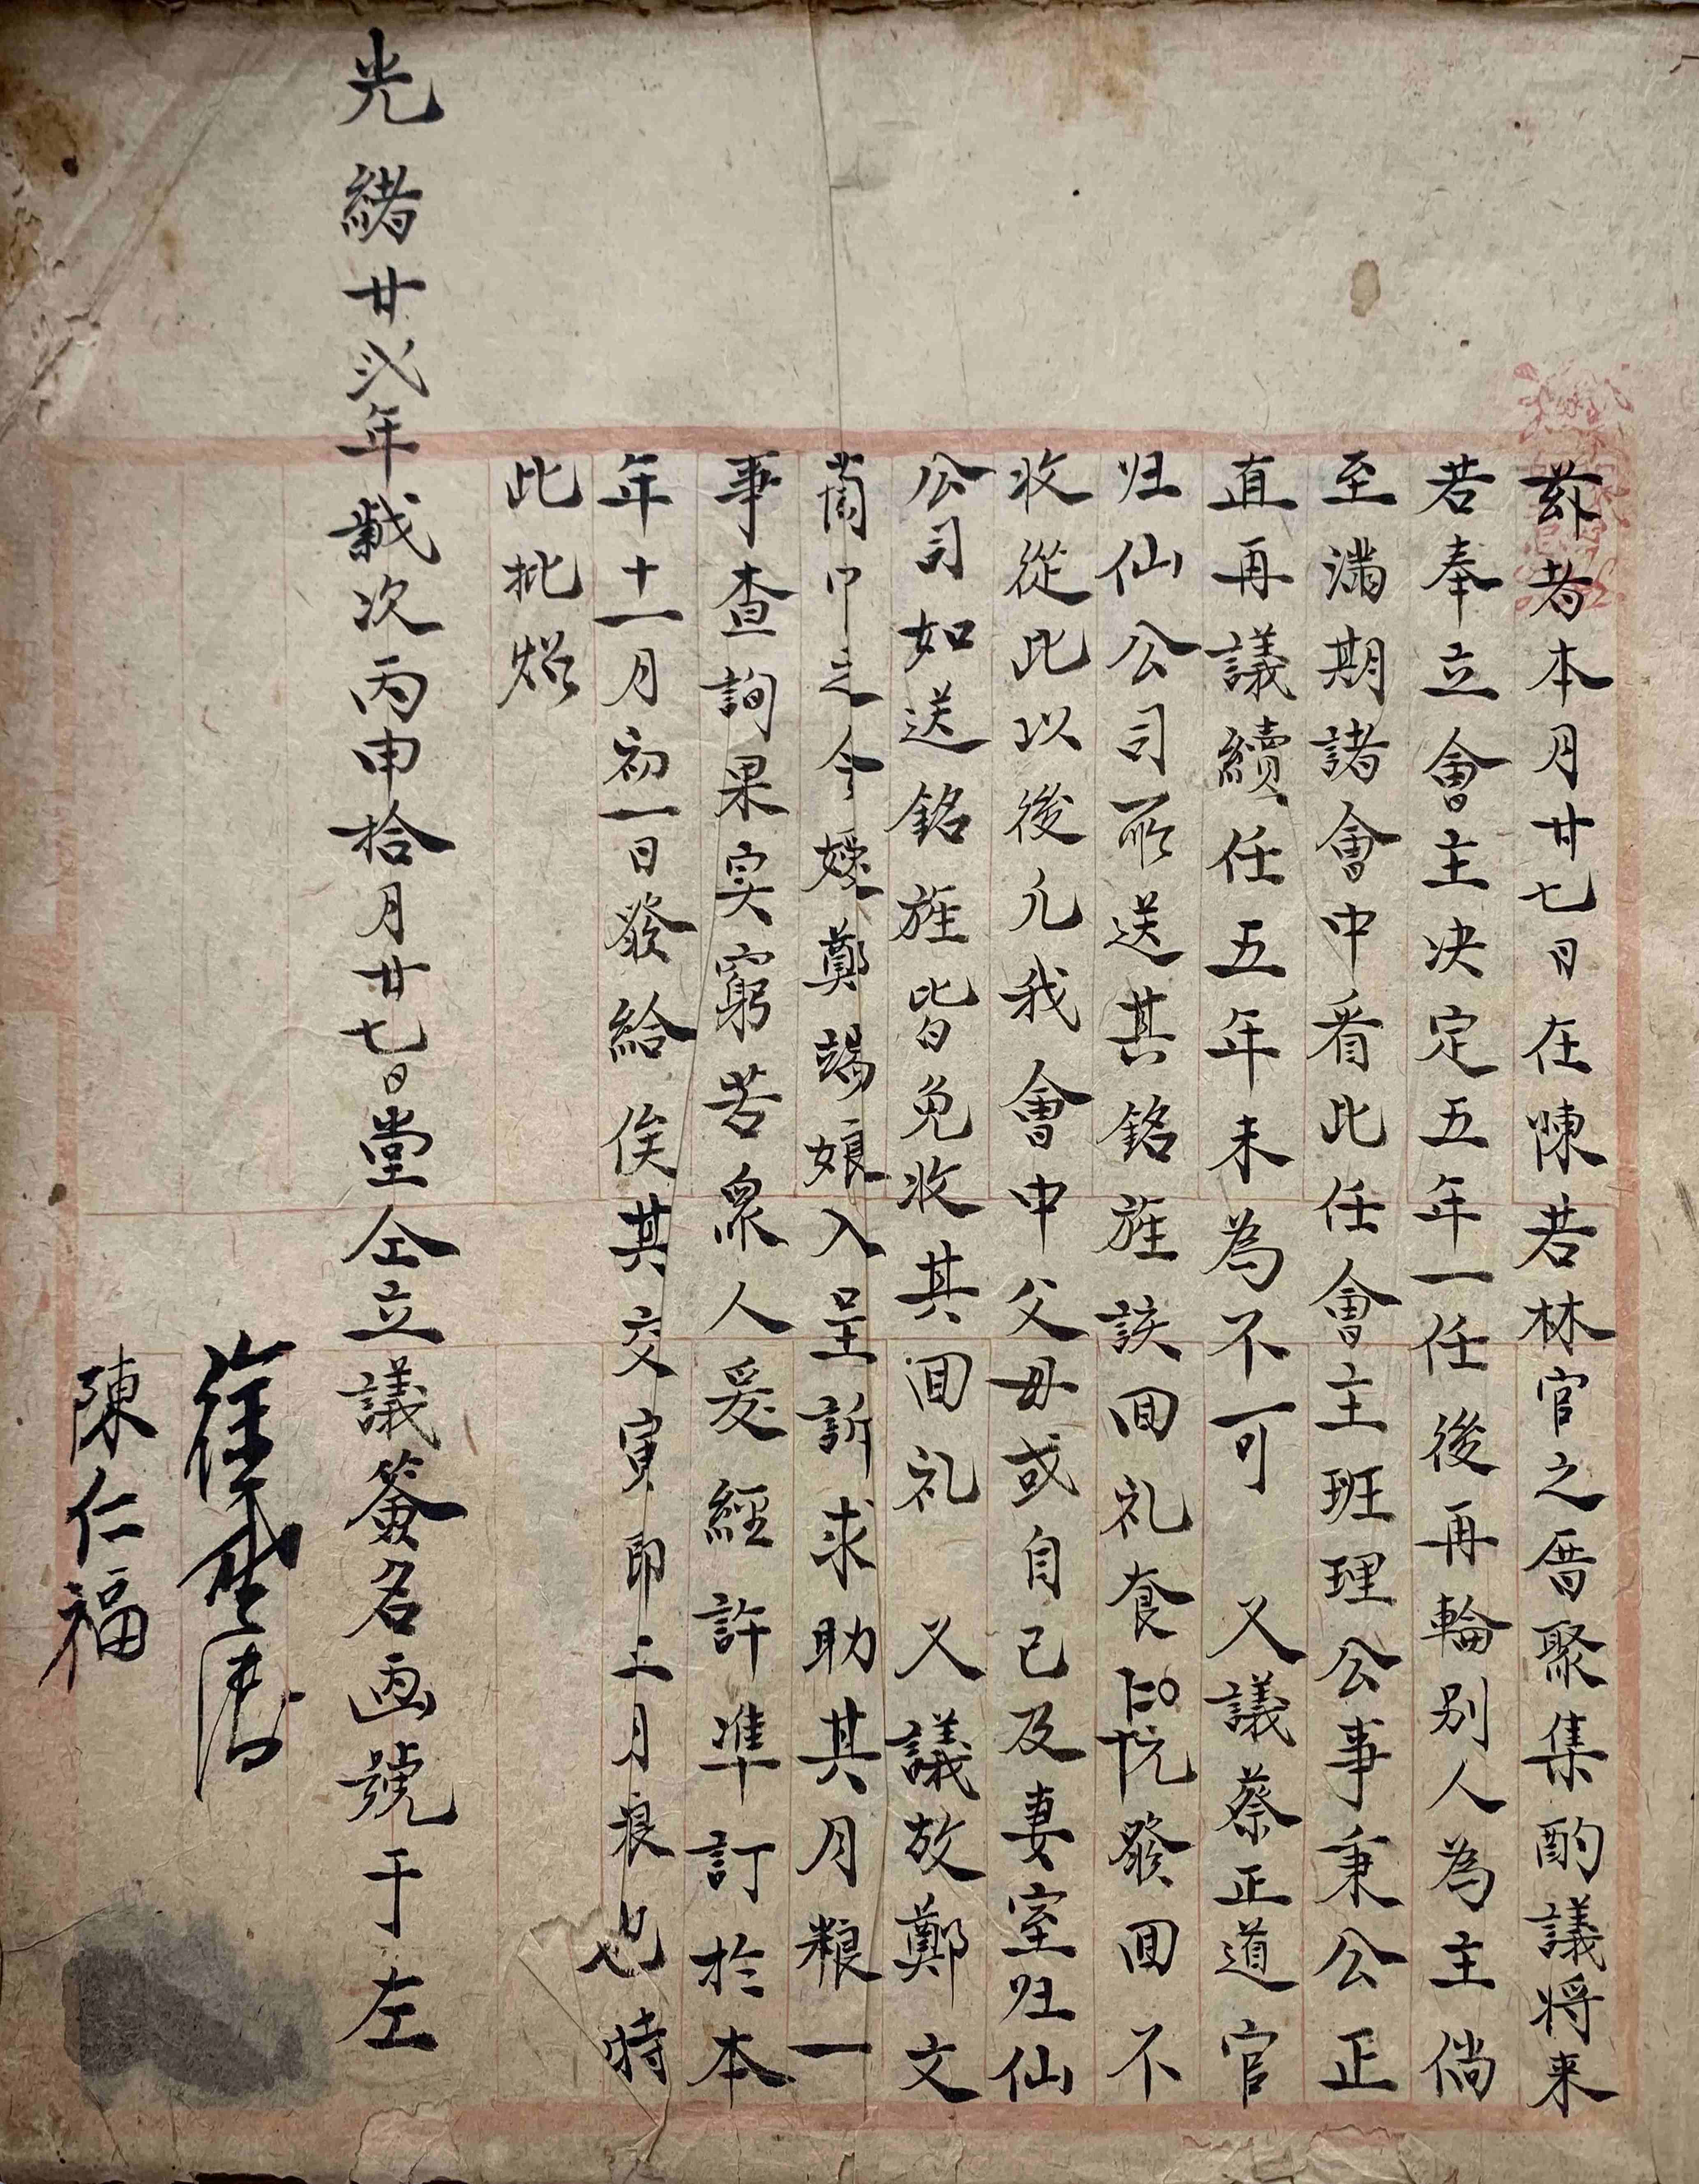 茲者本月廿七日在陳若林官之厝聚集酌議将来
若奉立會主决定五年一任後再輪别人為主倘
至滿期諸會中看此任會主班理公事秉公正
直再議續任五年未為不可 又議蔡正道官
归仙公司所送其銘旌該回礼食發回不
收從此以後凢我會中父毋或自己及妻室归仙
公司如送銘旌皆免收其回礼 又議故鄭文
之令嬡鄭娘入呈訴求助其月粮一
事查詢果实窮苦衆人爰經許準訂於本
年十一月初一日發給俟其交寅即三月粮也特
此批炤
光緒廿弍年歲次丙申拾月廿七日堂仝立議簽名画號于左
陳仁福